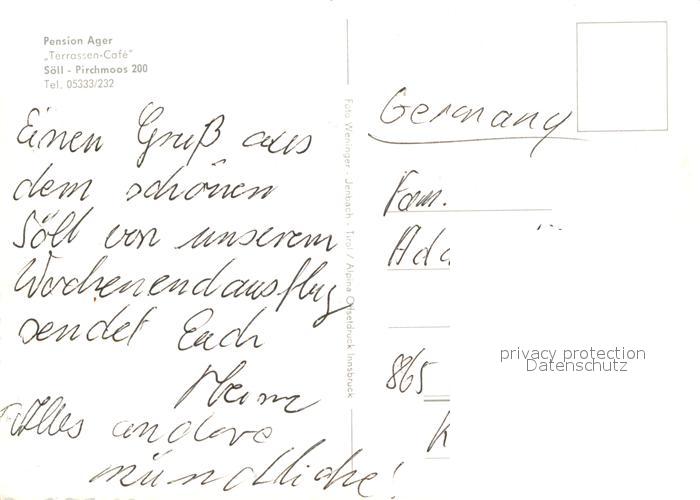 Pension Ager
„Terrassen-Café"
Söll - Pirchmoos 200
Tel. 05333/232
Einen Gruß aus
dem schönen
Söll von unserem
Wochenendausflug
sendet Euch
Heinz
Alles andere
mündliche!
Foto Weninger - Jenbach - Tirol / Alpina Offsetdruck Innsbruck
Germany
Fam.
Ada
865
K
privacy protection
Datenschutz